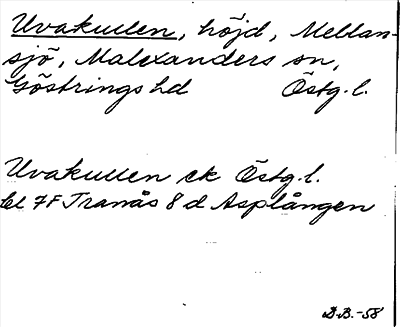 Uvakullen, höjd, Mellan-
sjö, Malexanders sn,
Göstrings hd Östg. l.
Uvakullen ek Östg. l.
bl 7F Tranås 8 d Asplången
B.B.-58